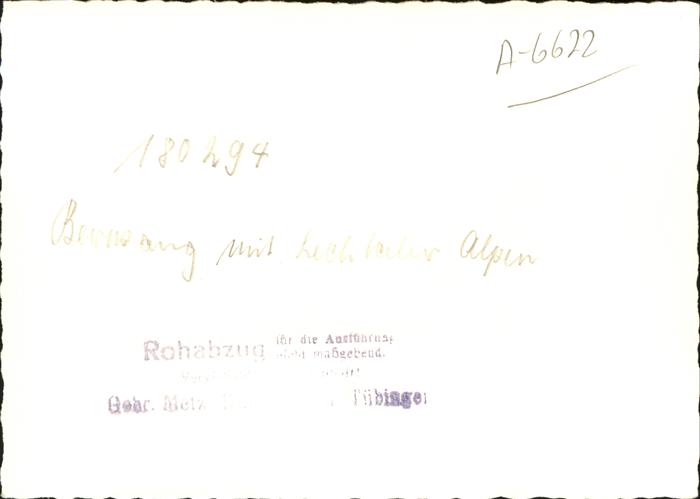 A-6622
180294
Berwang mit Lechtaler Alpen
Rohabzug für die Ausführung
nicht maßgebend.
Gebr. Metz Tübingen